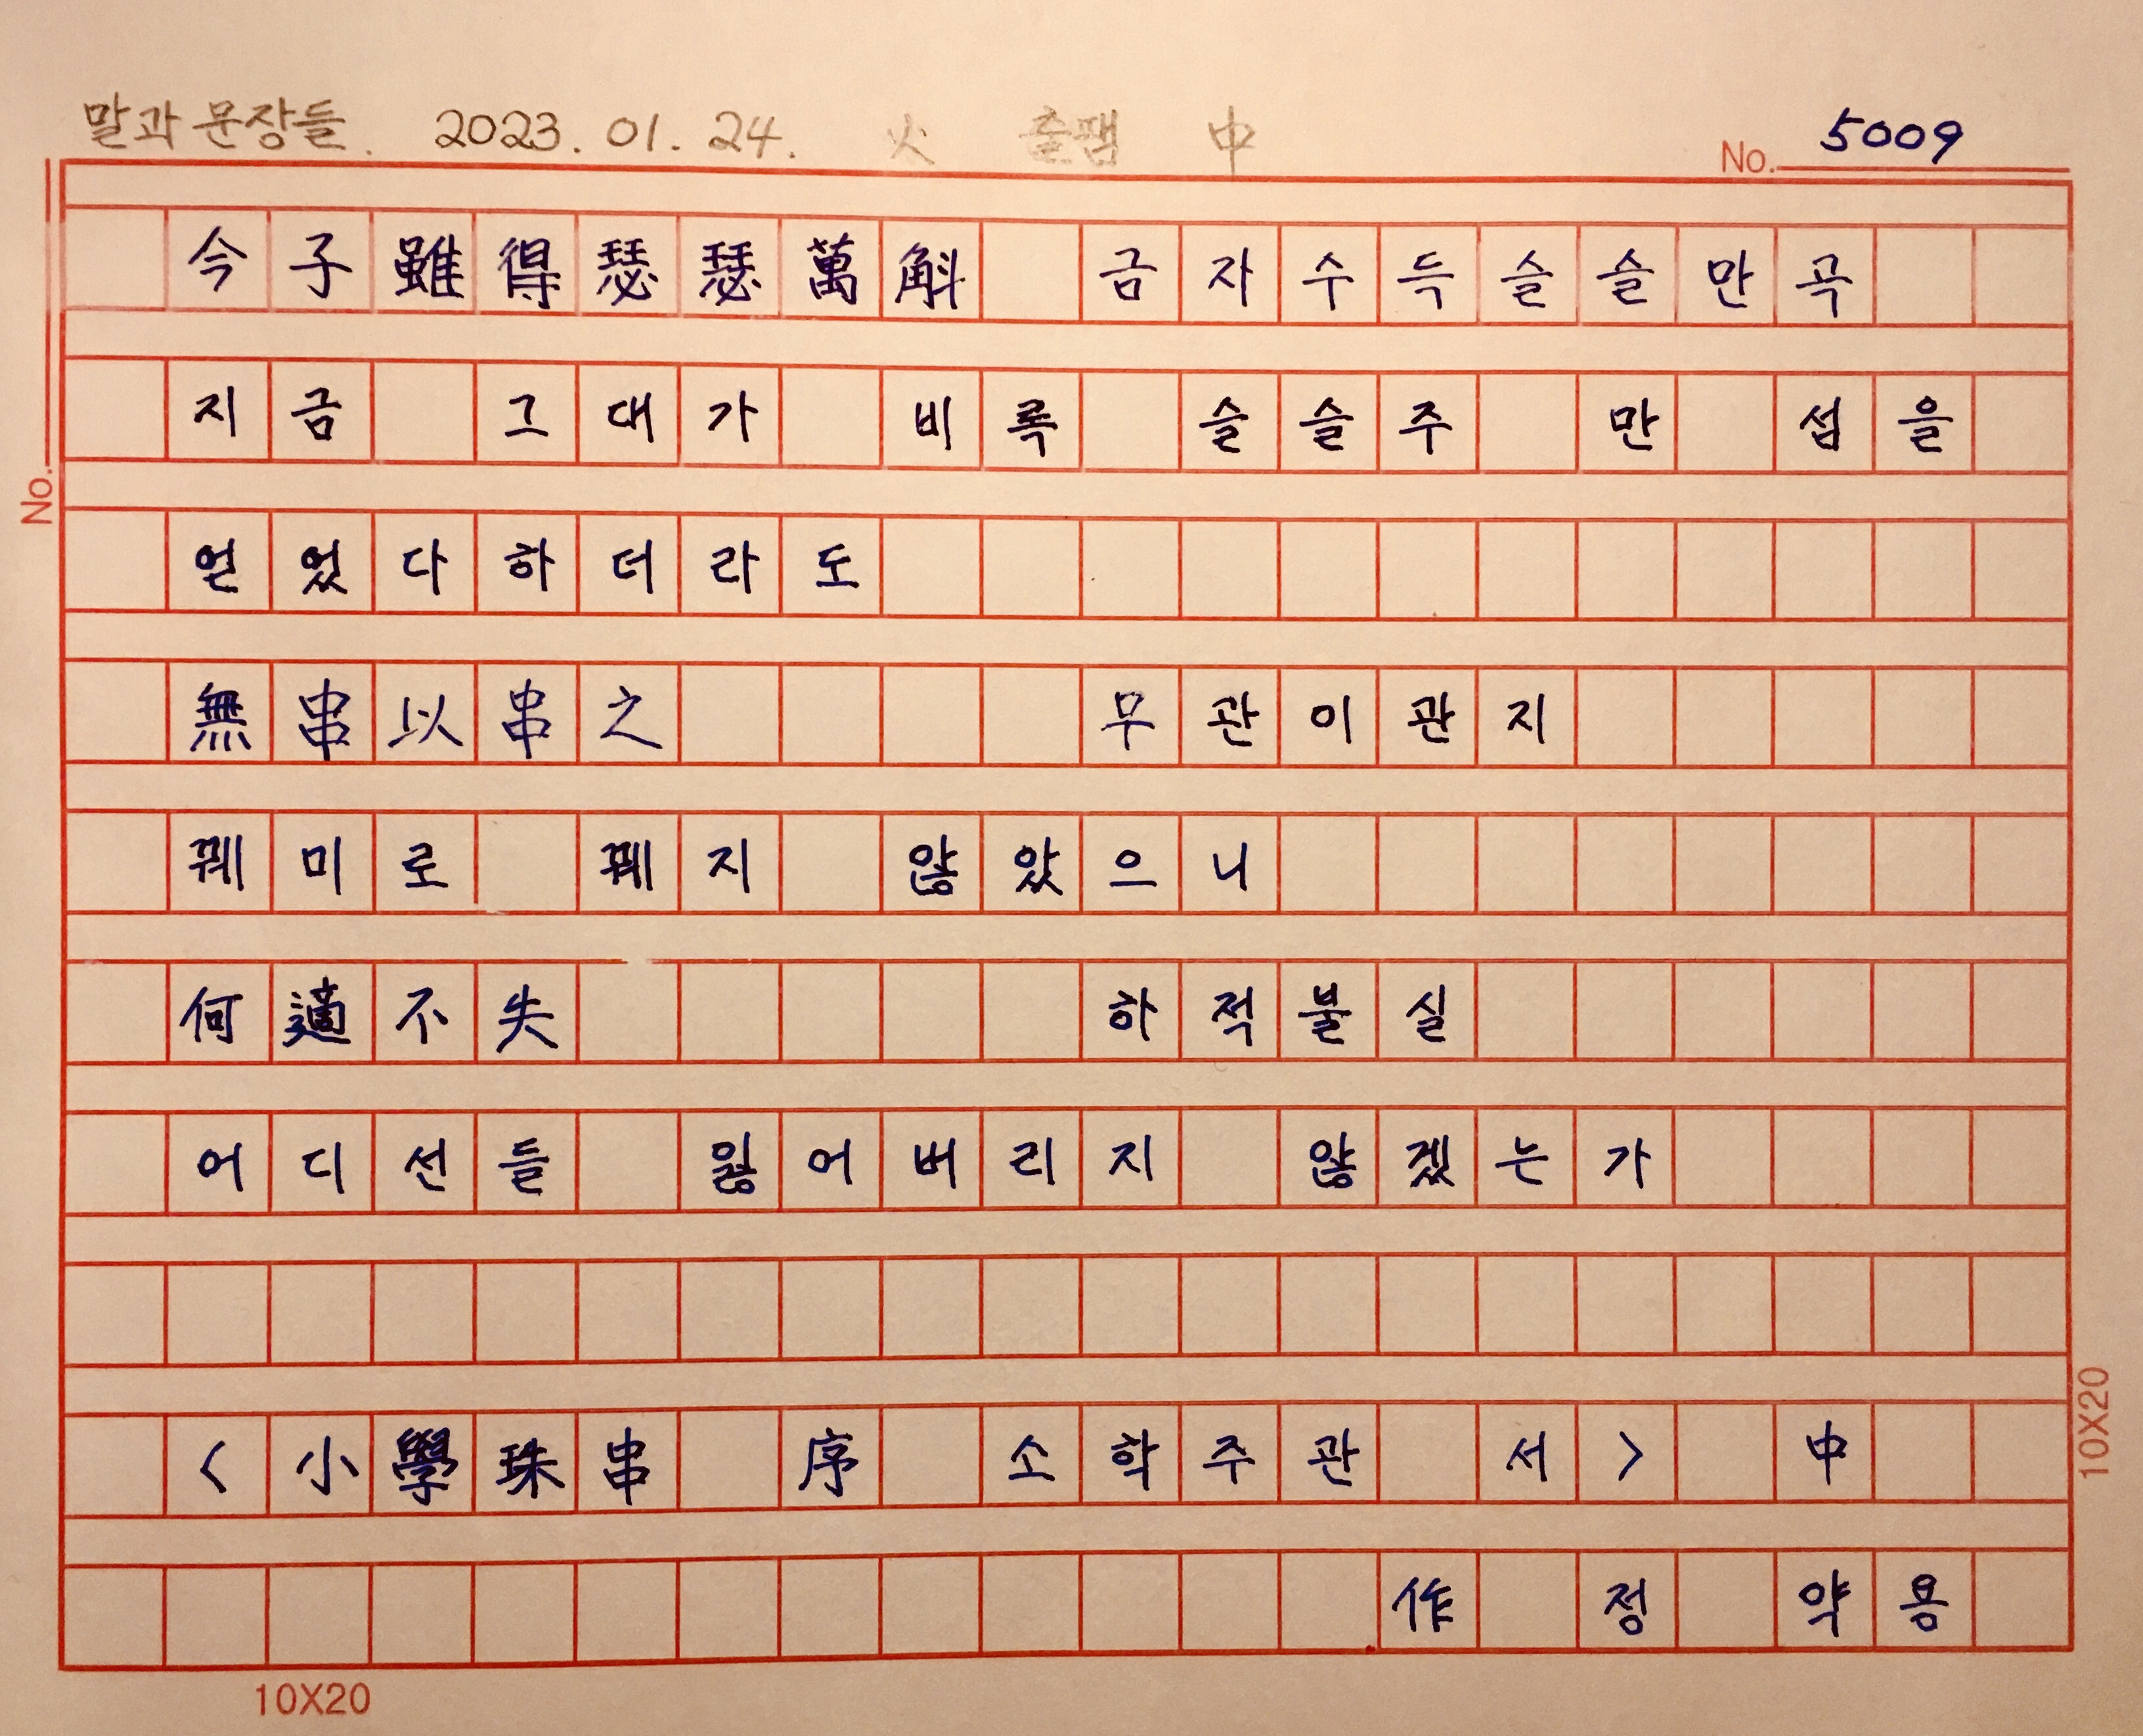 말과 문장들. 2023. 01. 24. 火 출팸 中 No. 5009
今子雖得瑟瑟萬斛 금자수득슬슬만곡
지금 그대가 비록 슬슬주 만 섬을
얻었다하더라도
No.
無串以串之 무관이관지
꿰미로 꿰지 않았으니
何適不失 하적불실
어디선들 잃어버리지 않겠는가
<小學珠串 序 소학주관 서> 中
10X20
作 정 약용
10X20